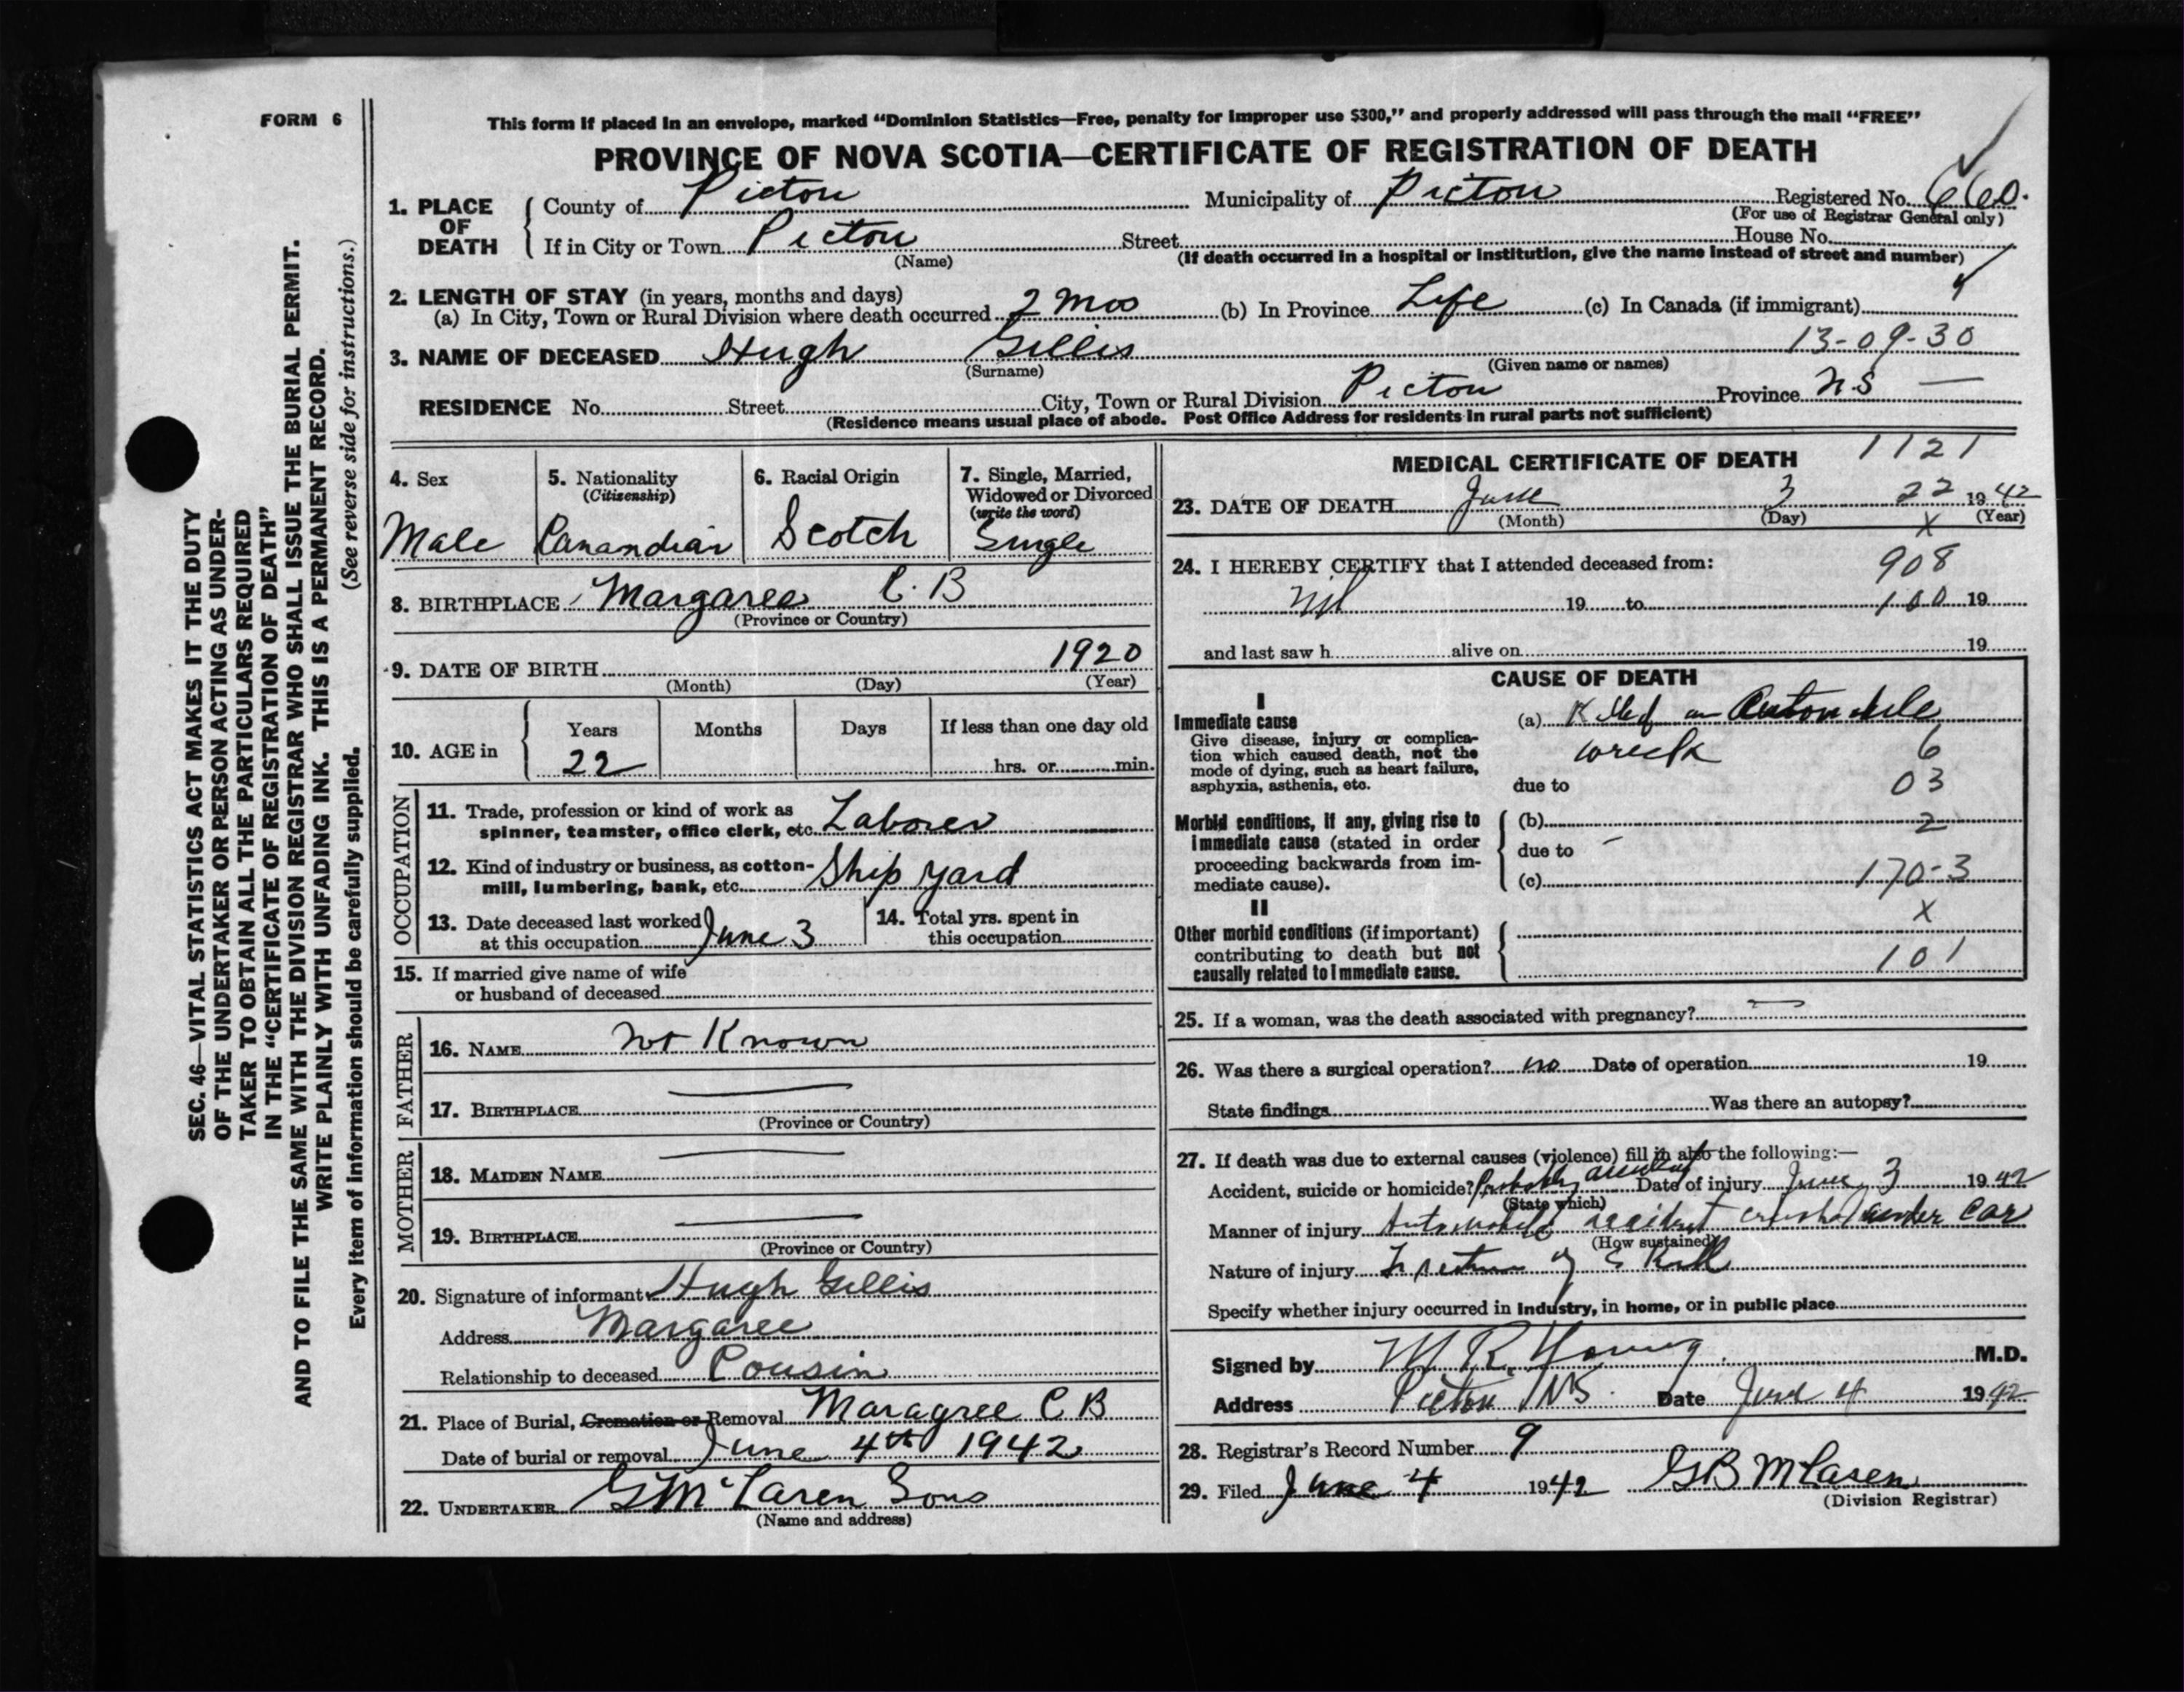 FORM 6
This form if placed in an envelope, marked “Dominion Statistics—Free, penalty for improper use $300,” and properly addressed will pass through the mail “FREE”
PROVINCE OF NOVA SCOTIA—CERTIFICATE OF REGISTRATION OF DEATH
1. PLACE OF DEATH
County of Pictou Municipality of Pictou Registered No. 660.
(For use of Registrar General only)
If in City or Town Pictou Street House No.
(Name) (If death occurred in a hospital or institution, give the name instead of street and number)
2. LENGTH OF STAY (in years, months and days)
(a) In City, Town or Rural Division where death occurred 2 Mos (b) In Province Life (c) In Canada (if immigrant)
13-09-30
3. NAME OF DECEASED Hugh Gillis
(Surname) (Given name or names)
RESIDENCE No. Street City, Town or Rural Division Pictou Province N.S —
(Residence means usual place of abode. Post Office Address for residents in rural parts not sufficient)
SEC. 46—VITAL STATISTICS ACT MAKES IT THE DUTY
OF THE UNDERTAKER OR PERSON ACTING AS UNDER-
TAKER TO OBTAIN ALL THE PARTICULARS REQUIRED
IN THE “CERTIFICATE OF REGISTRATION OF DEATH”
AND TO FILE THE SAME WITH THE DIVISION REGISTRAR WHO SHALL ISSUE THE BURIAL PERMIT.
WRITE PLAINLY WITH UNFADING INK. THIS IS A PERMANENT RECORD.
(See reverse side for instructions.)
Every item of information should be carefully supplied.
4. Sex
Male
5. Nationality
(Citizenship)
Canandian
6. Racial Origin
Scotch
7. Single, Married,
Widowed or Divorced
(write the word)
Single
8. BIRTHPLACE Margaree C.B
(Province or Country)
9. DATE OF BIRTH 1920
(Month) (Day) (Year)
10. AGE in
Years Months Days If less than one day old
22 hrs. or min.
OCCUPATION
11. Trade, profession or kind of work as
spinner, teamster, office clerk, etc. Laborer
12. Kind of industry or business, as cotton-
mill, lumbering, bank, etc. Ship yard
13. Date deceased last worked
at this occupation June 3
14. Total yrs. spent in
this occupation
15. If married give name of wife
or husband of deceased
FATHER
16. NAME Not Known
17. BIRTHPLACE —
(Province or Country)
MOTHER
18. MAIDEN NAME —
19. BIRTHPLACE —
(Province or Country)
20. Signature of informant Hugh Gillis
Address Margaree
Relationship to deceased Cousin
21. Place of Burial, Cremation or Removal Maragree C B
Date of burial or removal June 4th 1942
22. UNDERTAKER G McLaren Sons
(Name and address)
MEDICAL CERTIFICATE OF DEATH 1121
23. DATE OF DEATH June 3 22 1942
(Month) (Day) X (Year)
24. I HEREBY CERTIFY that I attended deceased from: 908
Nil 19 to 100 19
and last saw h alive on 19
CAUSE OF DEATH
I
Immediate cause
Give disease, injury or complica-
tion which caused death, not the
mode of dying, such as heart failure,
asphyxia, asthenia, etc.
(a) Killed in Automobile
wreck 6
due to 03
Morbid conditions, if any, giving rise to
immediate cause (stated in order
proceeding backwards from im-
mediate cause).
(b) 2
due to
(c) 170-3
II X
Other morbid conditions (if important)
contributing to death but not
causally related to immediate cause.
101
25. If a woman, was the death associated with pregnancy? —
26. Was there a surgical operation? no Date of operation 19
State findings Was there an autopsy?
27. If death was due to external causes (violence) fill in also the following:—
Accident, suicide or homicide? Probably accident Date of injury June 3 1942
(State which)
Manner of injury Automobile accident crushed under Car
(How sustained)
Nature of injury Fracture of Skull
Specify whether injury occurred in industry, in home, or in public place
Signed by M R. Young M.D.
Address Pictou NS. Date June 4 1942
28. Registrar's Record Number 9
29. Filed June 4 1942 GB McLaren
(Division Registrar)